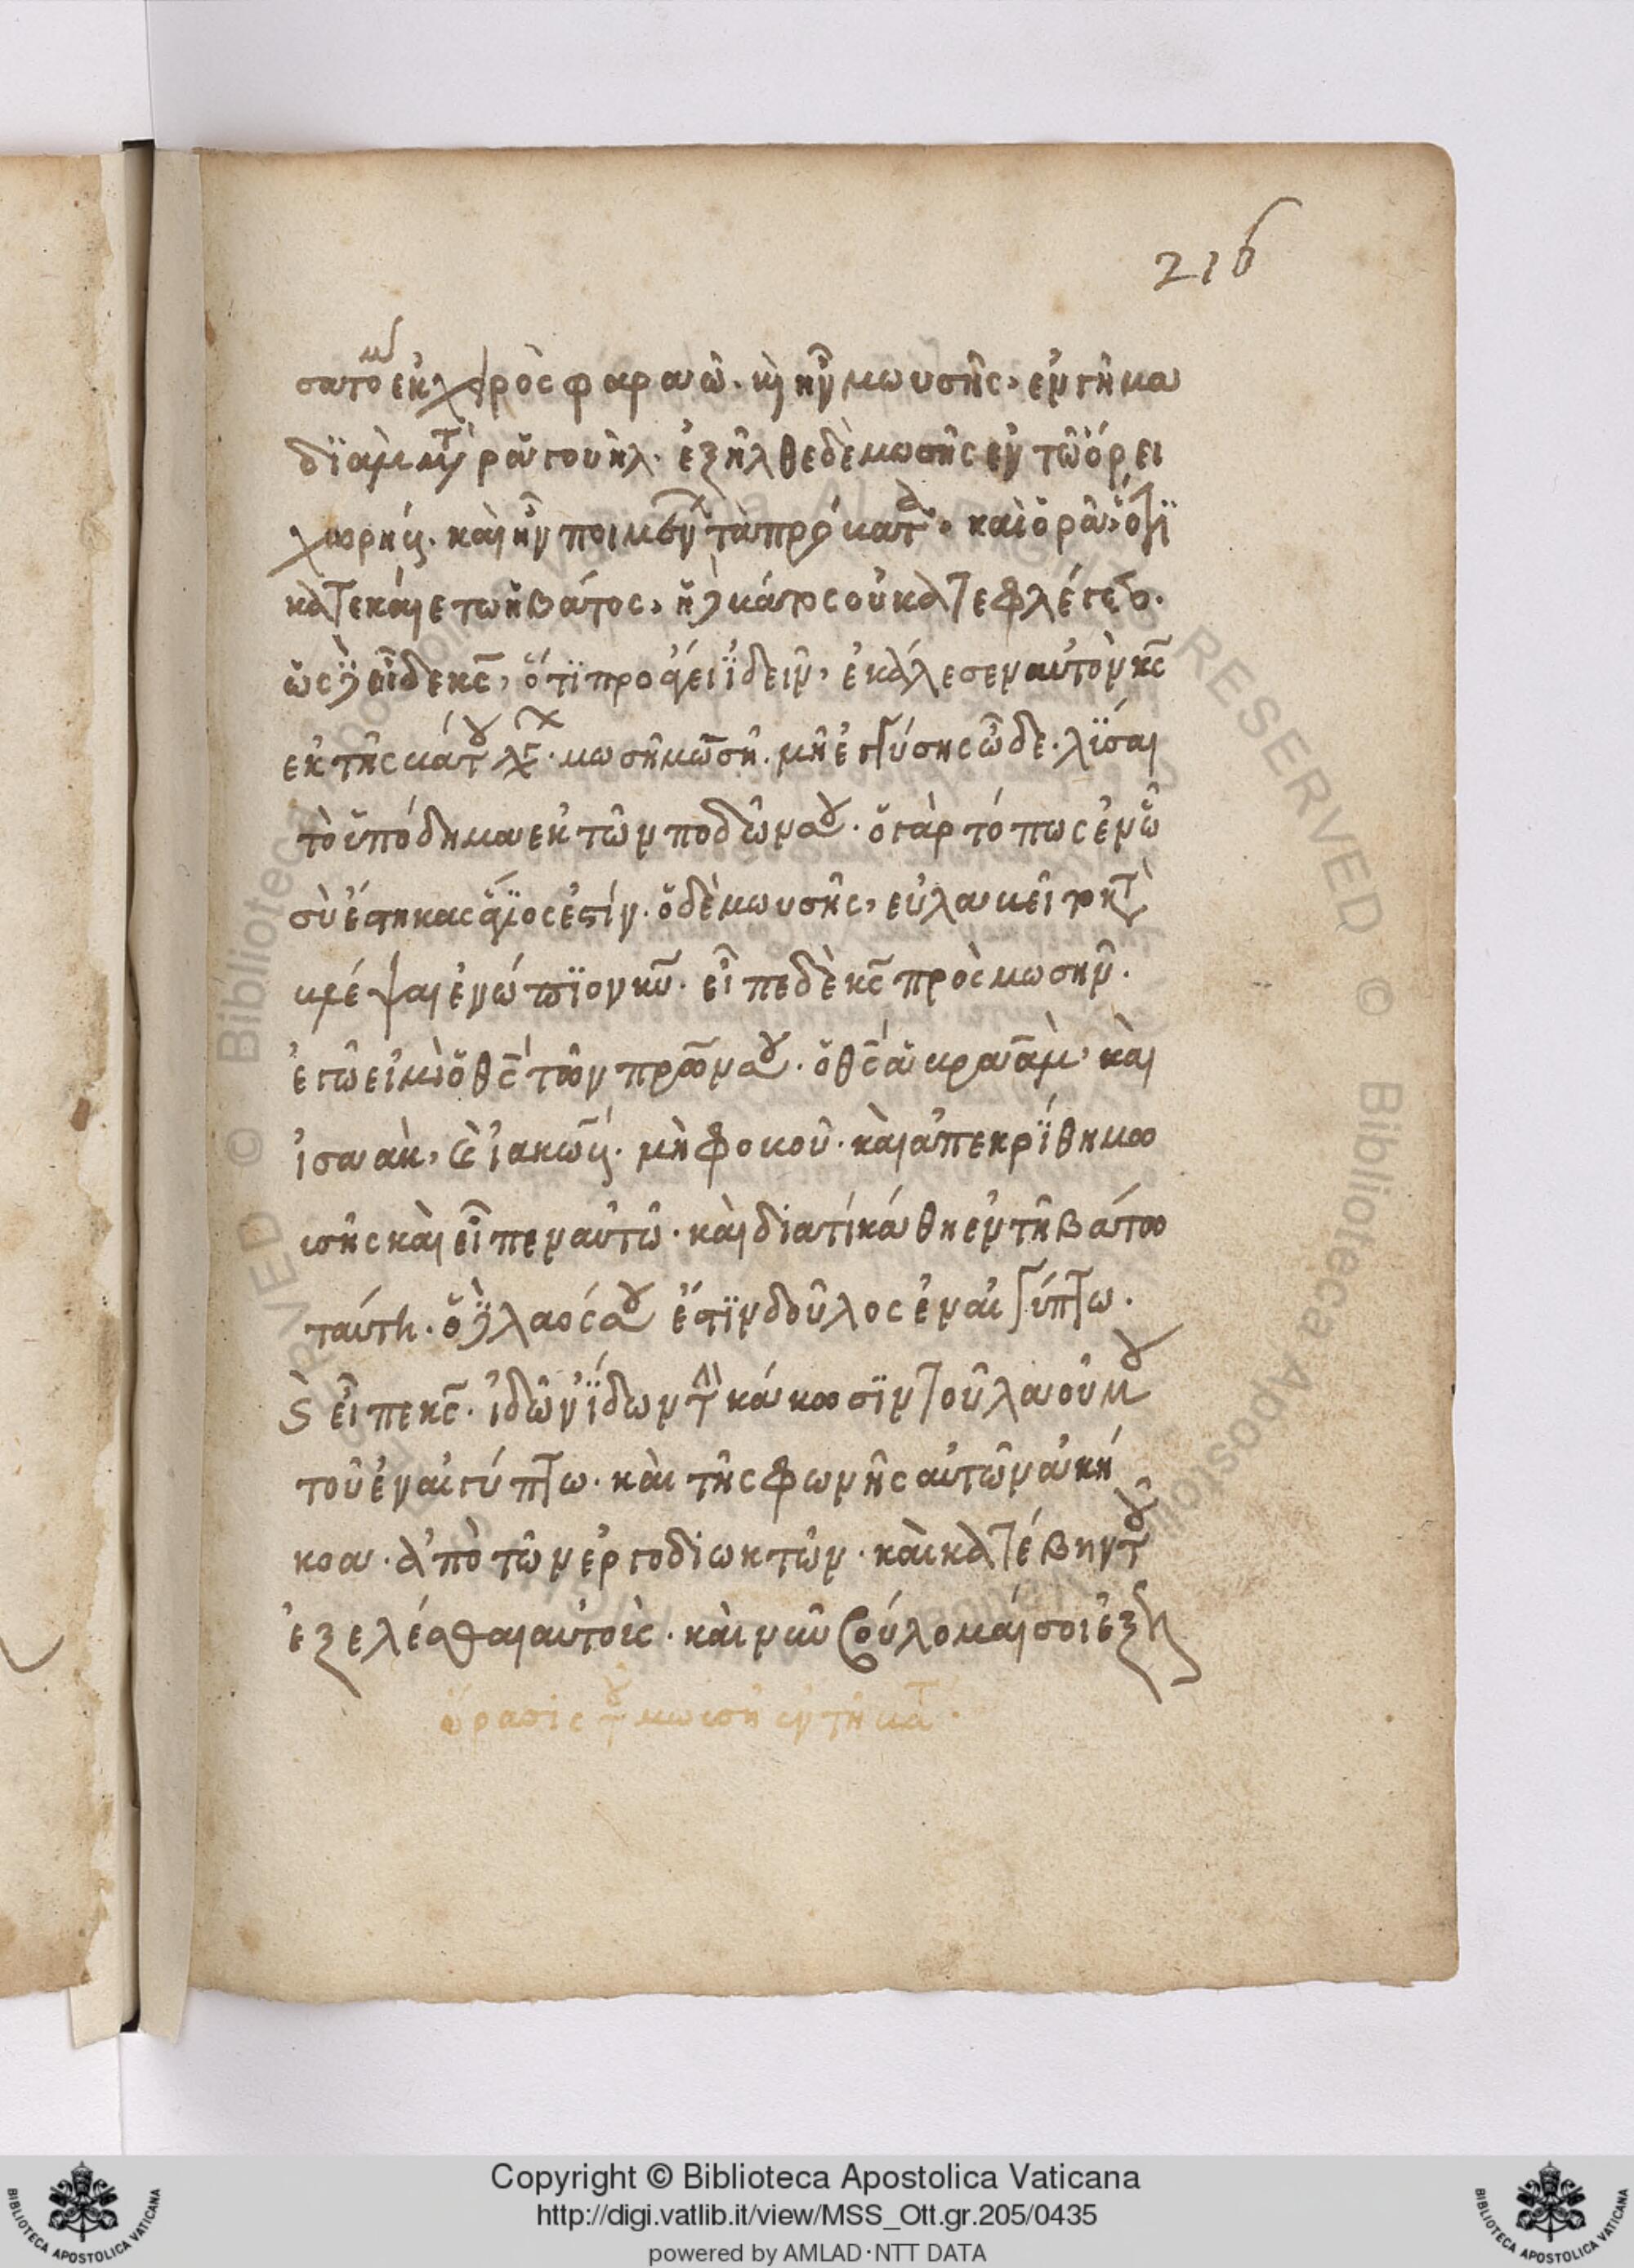 216
σατο ἐκ χειρὸς φαραὼ. καὶ ἦν μωυσῆς, ἐν γῆ μα
δϊὰμ μετὰ ῥαγουὴλ. ἐξῆλθε δὲ μωσῆς ἐν τῶ ὄρει
χωρήβ. καὶ ἦν ποιμένων τὰ πρόβατα. καὶ ὁρᾶ, ὅτι
κατεκάιετω ἡ βάτος, ἡ δὲ βάτος οὐ κατεφλέγετο.
ὡς δὲ εἶδε κς, ὅτϊ προσάγει ϊδεῖν, ἐκάλεσεν αὐτὸν κς
ἐκ τῆς βάτου λέγων. μωσῆ μωσῆ. μὴ ἐγγύσης ὧδε. λῖσαι
τὸ ὑπόδημα ἐκ τῶν ποδῶν σου. ὁ γὰρ τόπως ἐν ὧ
σὺ ἕστηκας ἅγϊος ἐστίν. ὁ δὲ μωυσῆς, εὐλαβεῖτο κατ
βλέψαι ἐνώπϊον κυ. εἶπε δὲ κς πρὸς μωσῆν.
ἐγὼ εἰμὶ ὁ θς τῶν πρων σου. ὁ θς ἀβραὰμ, καὶ
ἰσαὰκ, καὶ ἰακὼβ. μὴ φοβοῦ. καὶ ἀπεκρίθη μω
ισῆς καὶ εἶπεν αὐτῶ. καὶ διατί κάθη ἐν τῆ βάτω
ταύτη. ὁ δὲ λαός σου ἔστϊν δοῦλος ἐν αἰγύπτω.
καὶ εἶπε κς. ἰδὼν ϊδων τὴν κάκωσϊν τοῦ λαοῦ μου
τοῦ ἐν αἰγύπτω. καὶ τῆς φωνῆς αὐτῶν ἀκή
κοα. ἀπὸ τῶν ἐργοδιωκτῶν. καὶ κατέβην τοῦ
ἐξελέσθαι αὐτοὶς. καὶ νῦν βούλομαί σοι ἐξη
ὅρασις τοῦ μωισῆ ἐν τῆ βάτ.
© Biblioteca Apostolica Vaticana ALL RIGHTS RESERVED
Copyright © Biblioteca Apostolica Vaticana
http://digi.vatlib.it/view/MSS_Ott.gr.205/0435
powered by AMLAD·NTT DATA
BIBLIOTECA APOSTOLICA VATICANA
BIBLIOTECA APOSTOLICA VATICANA